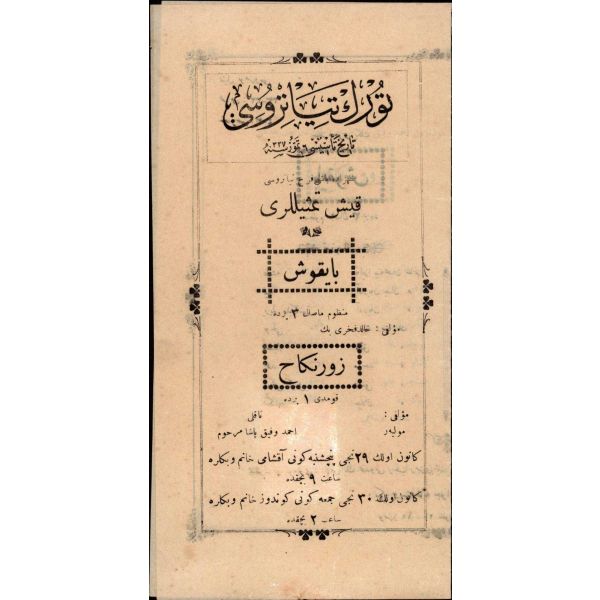 تورك تياتروسى
تاريخ تأسيسى ٦ تموز سنه ٣٣٧
فرح تياتروسى
قيش تمثيللرى
بايقوش
منظوم ماصال ٣ پرده
مؤلفى : خالد فخرى بك
زور نكاح
قومدى ١ پرده
مؤلفى : ناقلى
موليه ر احمد وفيق پاشا مرحوم
كانون اولك ٢٩ نجى پنجشنبه كونى آقشامى خانم و بكلره
ساعت ٩ بچقده
كانون اولك ٣٠ نجى جمعه كونى كوندوز خانم و بكلره
ساعت ٢ بچقده